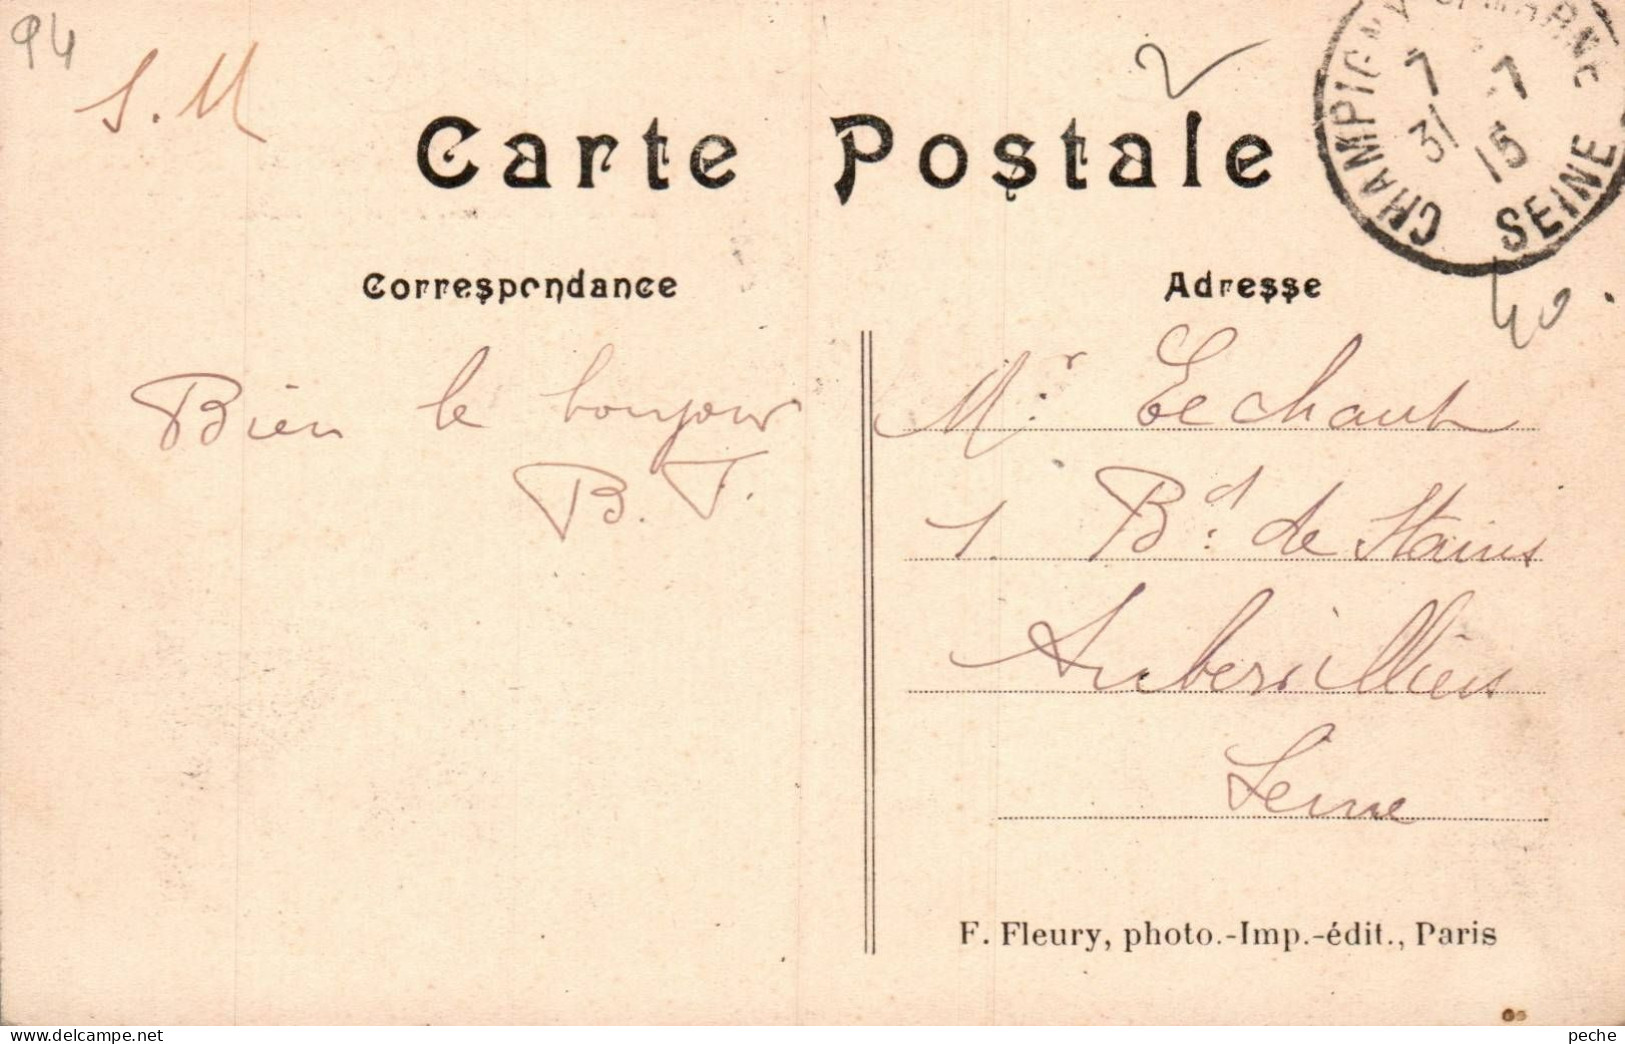 94
S. M
Carte Postale
CHAMPIGNY S. MARNE
7 7
31 15
SEINE
40.
Correspondance
Adresse
Bien le bonjour
B. T.
Mr. Echaut
1. Bd. de Stains
Aubervilliers
Seine
F. Fleury, photo.-Imp.-édit., Paris
peche